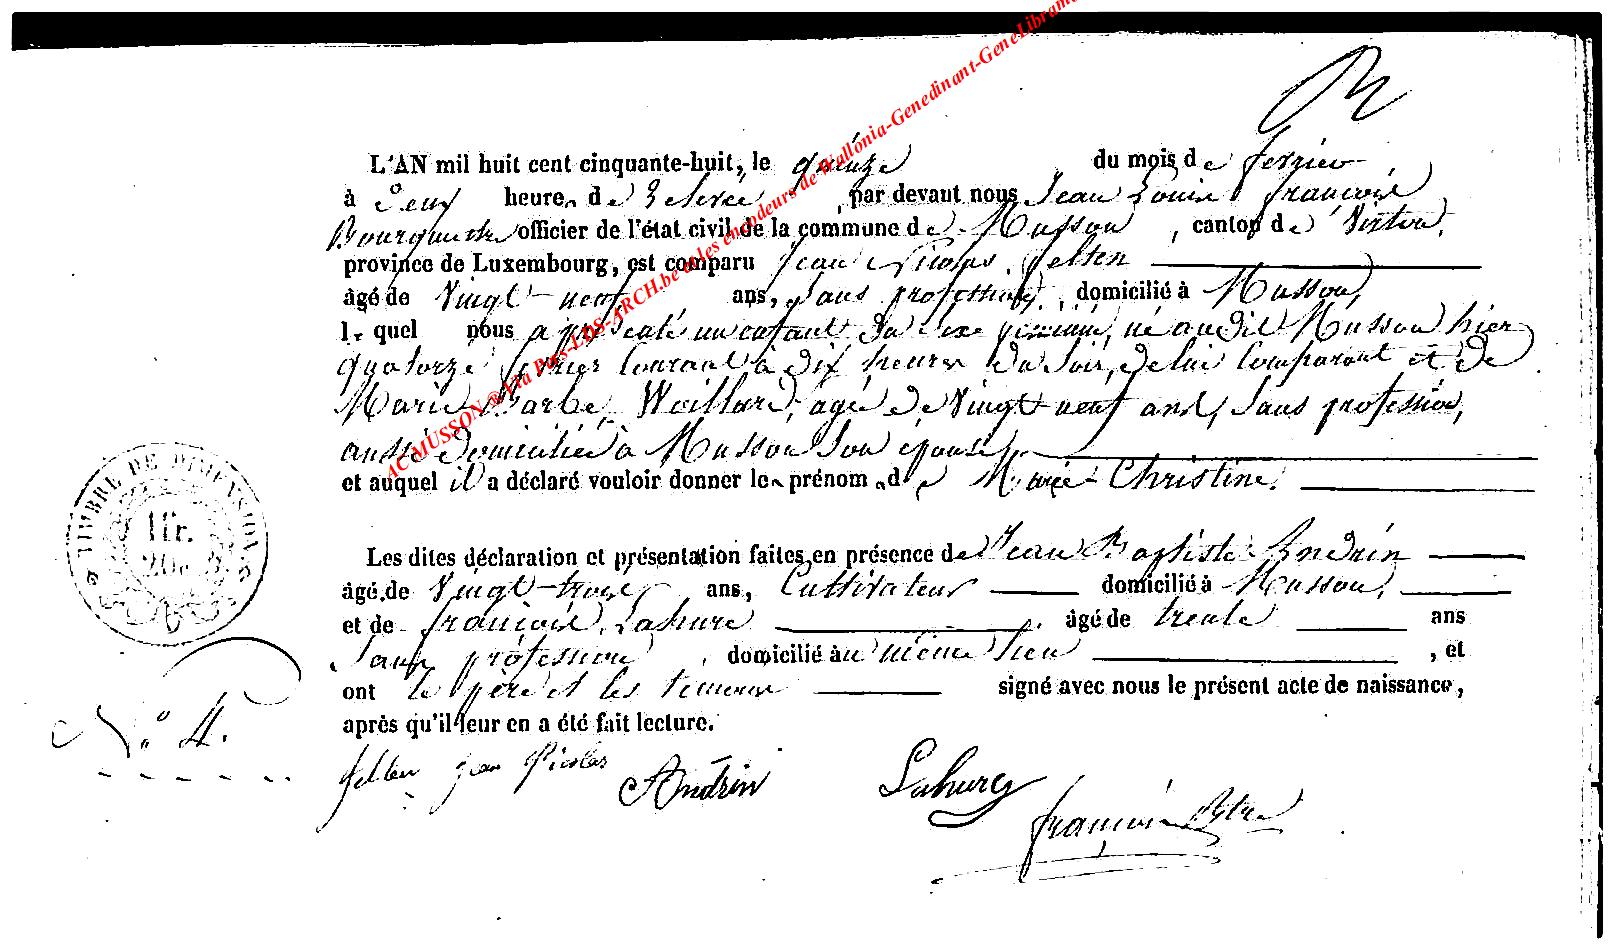 AC MUSSON @ Via Pus-LDS-ARCH.be et les encodeurs de Wallonia-Genedinant-GeneLibrami
L'AN mil huit cent cinquante-huit, le quinze du mois de fevrier
à deux heures de relevée par devant nous Jean Louis François
Bourgmestre officier de l'état civil de la commune de Musson, canton de Virton,
province de Luxembourg, est comparu Jean Nicolas Felten
âgé de Vingt-neuf ans, Sans profession, domicilié à Musson,
lequel nous a présenté un enfant du sexe féminin, né audit Musson hier
quatorze fevrier Courant à dix heures du Soir, de lui Comparant et de
Marie Barbe Woillard, agée de Vingt neuf ans, Sans profession,
aussi domiciliée à Musson Son épouse
et auquel il a déclaré vouloir donner les prénoms de Marie-Christine.
Les dites déclaration et présentation faites en présence de Jean Baptiste Andrin
âgé de Vingt-trois ans, Cultivateur domicilié à Musson,
et de françois Lahure âgé de trente ans
Sans profession, domicilié au même lieu, et
ont le père et les temoins signé avec nous le présent acte de naissance,
après qu'il leur en a été fait lecture.
TIMBRE DE DIMENSION
1fr.
20c
N° 4.
felten jean Nicolas
Andrin
Lahure
françois